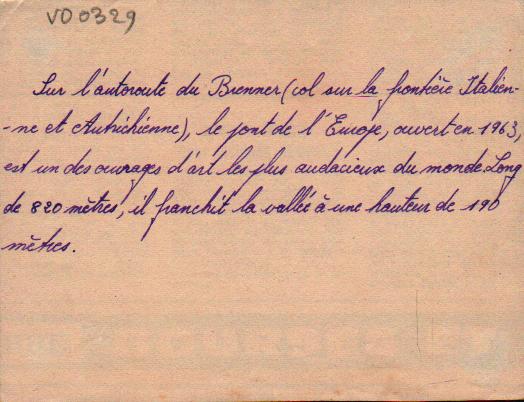 VO 0329
Sur l'autoroute du Brenner (col sur la frontière Italien-
-ne et Autrichienne), le pont de l'Europe, ouvert en 1963,
est un des ouvrages d'art les plus audacieux du monde. Long
de 820 mètres, il franchit la vallée à une hauteur de 190
mètres.